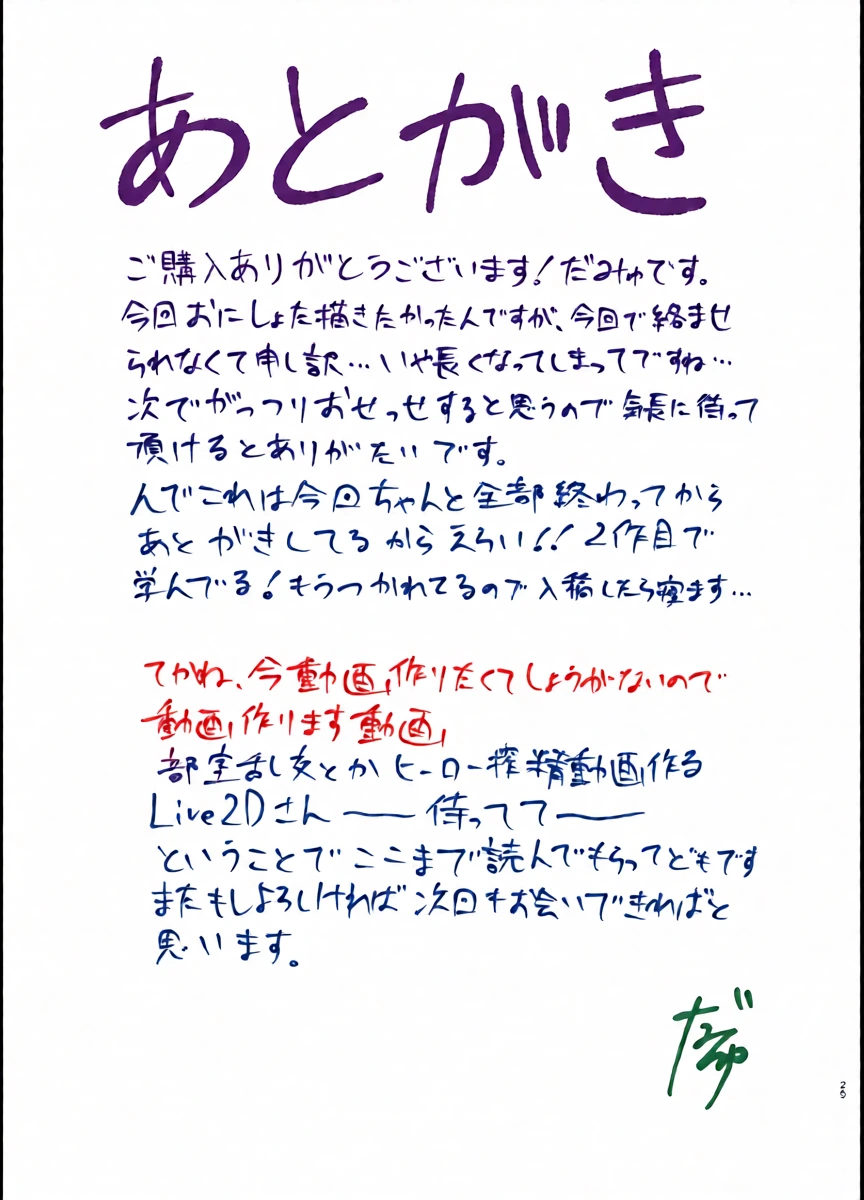 あとがき
ご購入ありがとうございます!だみゅです。
今回おにしょた描きたかったんですが、今回で絡ませ
られなくて申し訳…いや長くなってしまってですね…
次でがっつりおせっせすると思うので気長に待って
頂けるとありがたいです。
んでこれは今回ちゃんと全部終わってから
あとがきしてるからえらい!!2作目で
学んでる!もうつかれてるので入稿したら寝ます…
てかね、今動画作りたくてしょうがないので
動画作ります動画
部室乱し女とかヒーロー搾精動画作る
Live2Dさん――待ってて――
ということでここまで読んでもらってどもです
またもしよろしければ次回もお会いできればと
思います。
だみゅ